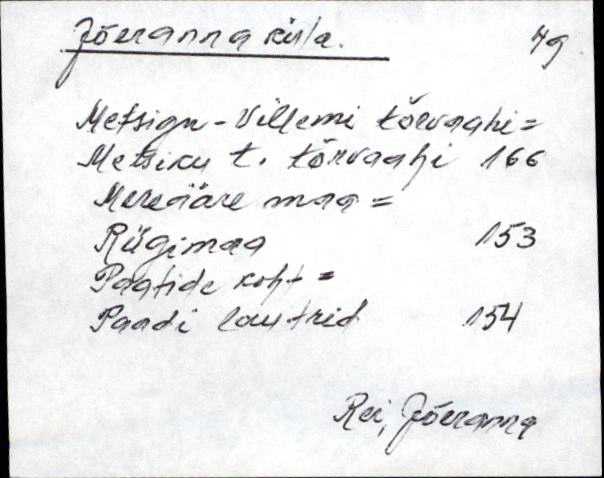 Jõeranna küla. 49
Metsigu-Villemi tõrvaahi=
Metsiku t. tõrvaahi 166
Mereääre maa =
Riigimaa 153
Paatide koht =
Paadi lautrid 154
Rei, Jõeranna